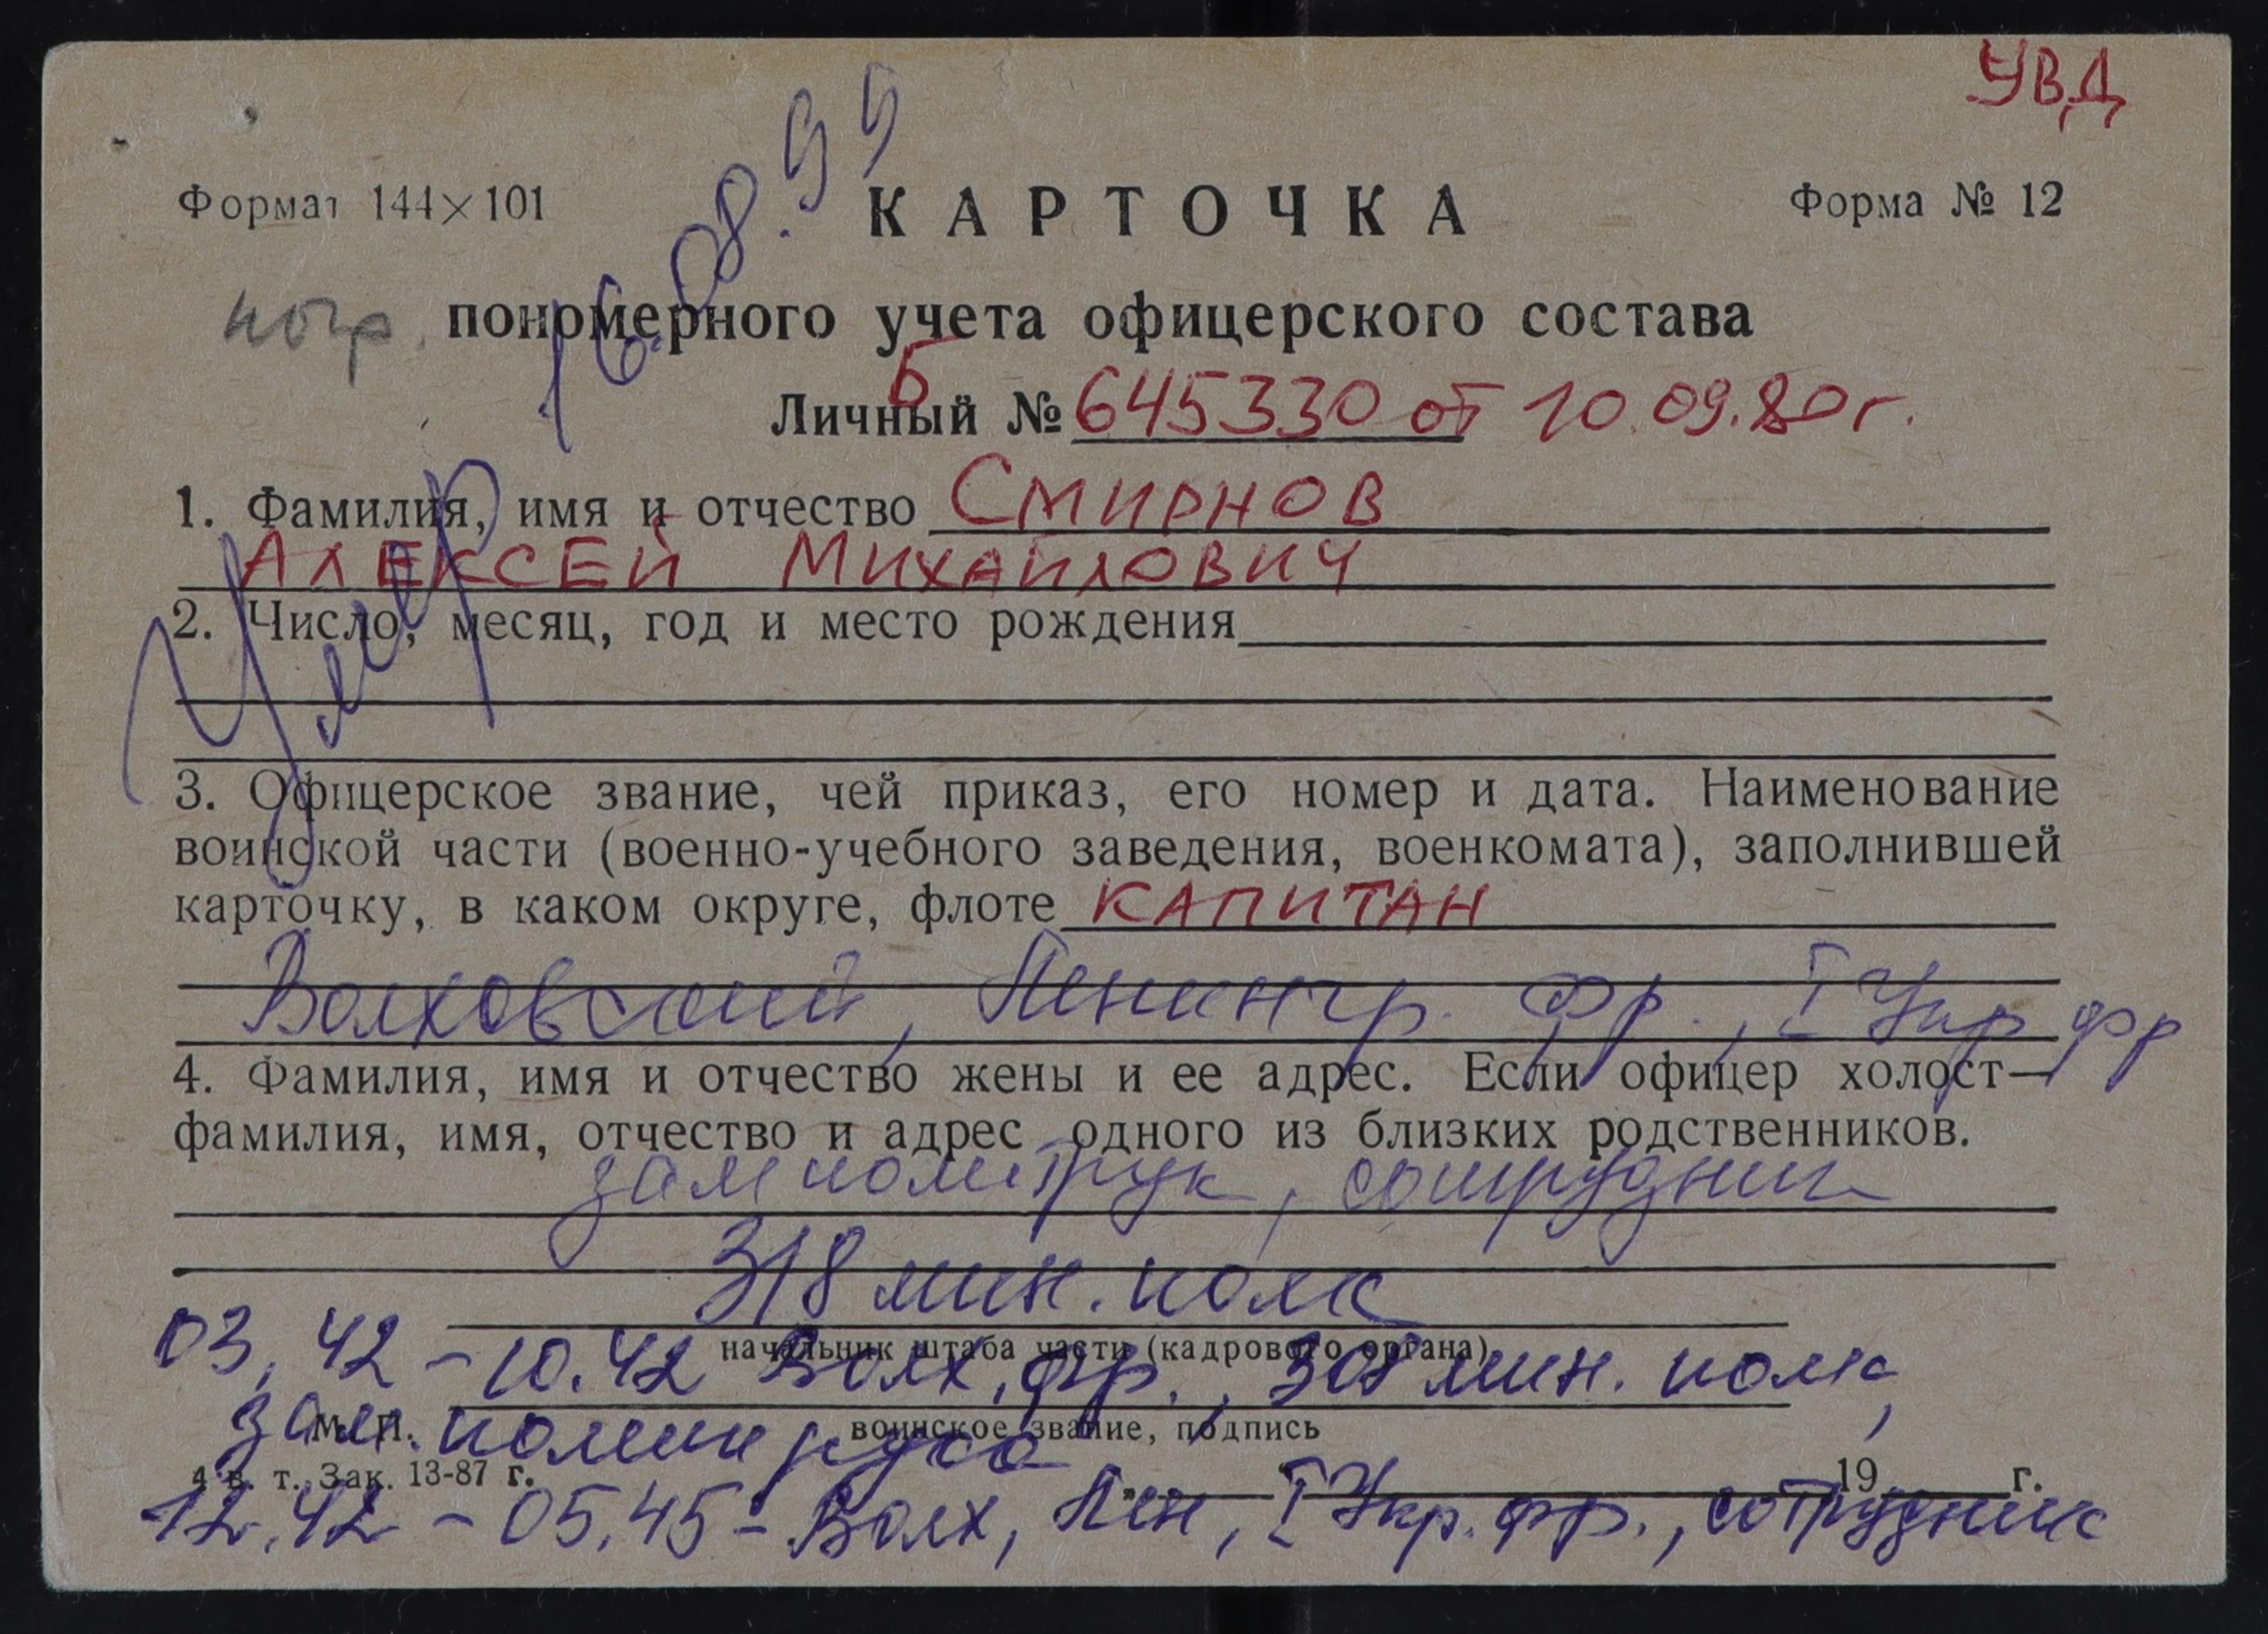 УВД
Формат 144×101
КАРТОЧКА
Форма № 12
погр.
пономерного учета офицерского состава
Личный № Б 645330 от 10.09.80 г.
Умер 16.08.99
1. Фамилия, имя и отчество Смирнов
Алексей Михайлович
2. Число, месяц, год и место рождения
3. Офицерское звание, чей приказ, его номер и дата. Наименование
воинской части (военно-учебного заведения, военкомата), заполнившей
карточку, в каком округе, флоте капитан
Волховский, Ленингр. фр., I Укр фр
4. Фамилия, имя и отчество жены и ее адрес. Если офицер холост—
фамилия, имя, отчество и адрес одного из близких родственников.
зам политрук, сотрудник
318 мин. полк
начальник штаба части (кадрового органа)
03.42 – 10.42 Волх. фр., 308 мин. полк,
М. П.
воинское звание, подпись
зам. политрука
4 в. т. Зак. 13-87 г.
„ “ 19 г.
12.42 – 05.45 – Волх, Лен, I Укр. фр., сотрудник